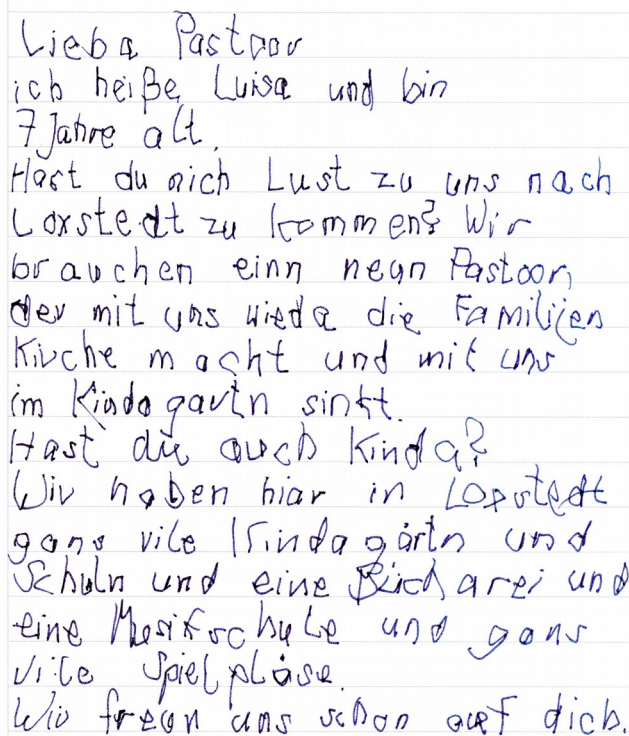 Lieba Pastoor
ich heiße Luisa und bin
7 Jahre alt.
Hast du nich Lust zu uns nach
Loxstedt zu kommen? Wir
brauchen einn neun Pastoor,
der mit uns wieda die Familijen
Kirche macht und mit uns
im Kindagartn sinkt.
Hast du auch Kinda?
Wir haben hiar in Loxstedt
gans vile Kindagärtn und
Schuln und eine Bücharei und
eine Musikschule und gans
vile Spielpläse.
Wir freun uns schon auf dich.